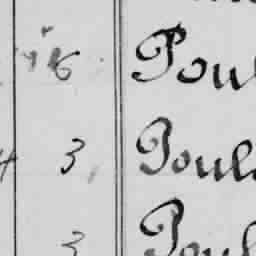 6 Poul
4 3 Poul
3 Poul